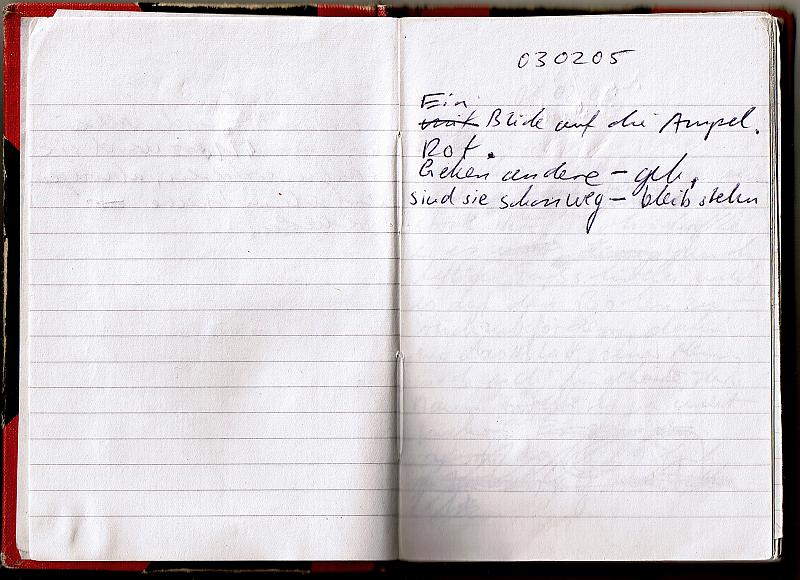 030205
Ein
mit Blick auf die Ampel.
Rot.
Gehen andere – geh,
sind sie schon weg – bleib stehn